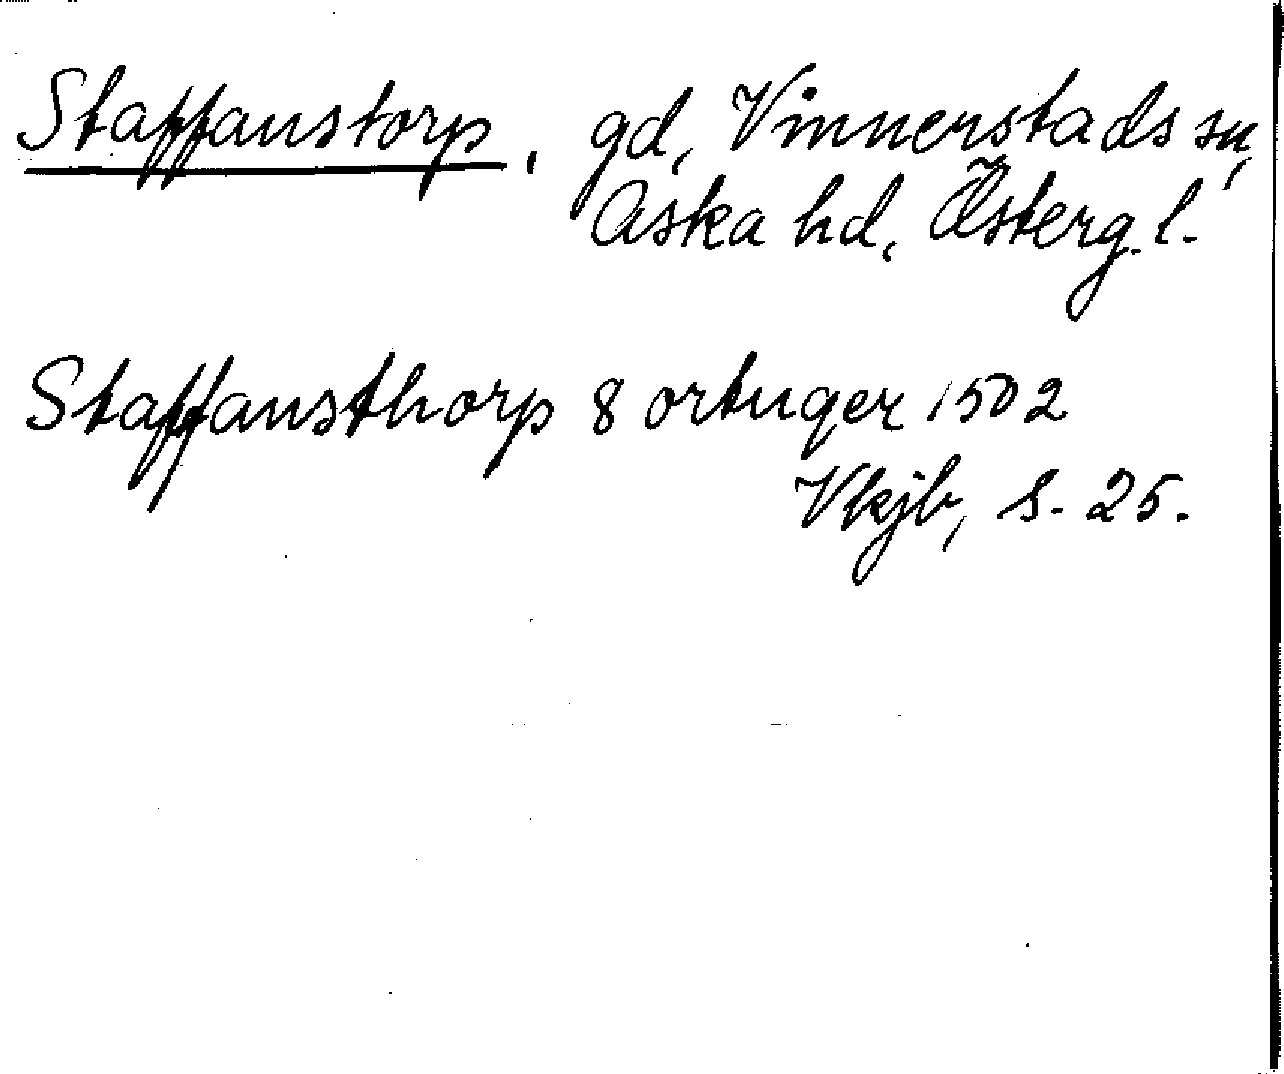 Staffanstorp, gd, Vinnerstads sn,
Aska hd, Österg. l.
Staffansthorp 8 ortuger 1502
Vkjb, s. 25.